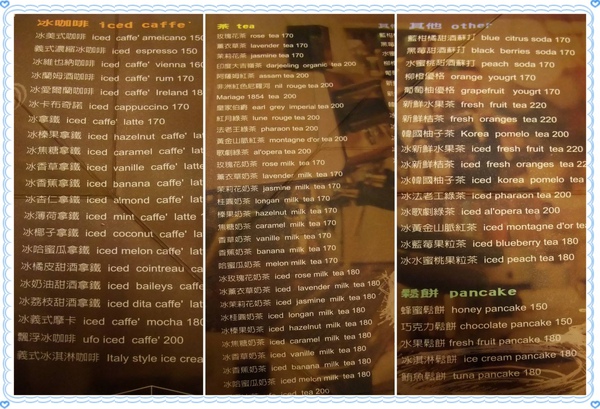 冰咖啡 iced caffe'
冰美式咖啡 iced caffe' ameicano 150
義式濃縮冰咖啡 iced espresso 150
冰維也納咖啡 iced caffe' vienna 160
冰蘭姆酒咖啡 iced caffe' rum 170
冰愛爾蘭咖啡 iced caffe' Ireland 18
冰卡布奇諾 iced cappuccino 170
冰拿鐵 iced caffe' latte 170
冰榛果拿鐵 iced hazelnut caffe' lat
冰焦糖拿鐵 iced caramel caffe' latt
冰香草拿鐵 iced vanille caffe' latte
冰香蕉拿鐵 iced banana caffe' lat
冰杏仁拿鐵 iced almond caffe' lat
冰薄荷拿鐵 iced mint caffe' latte
冰椰子拿鐵 iced coconut caffe' la
冰哈蜜瓜拿鐵 iced melon caffe' la
冰橘皮甜酒拿鐵 iced cointreau ca
冰奶油甜酒拿鐵 iced baileys caffe
冰荔枝甜酒拿鐵 iced dita caffe' lat
冰義式摩卡 iced caffe' mocha 180
飄浮冰咖啡 ufo iced caffe' 200
義式冰淇淋咖啡 Italy style ice crea
茶 tea
玫瑰花茶 rose tea 170
薰衣草茶 lavender tea 170
茉莉花茶 jasmine tea 170
印度大吉嶺茶 darjeeling organic tea 200
阿薩姆紅茶 assam tea 200
Mariage 1854 tea 200
皇家伯爵 earl grey imperial tea 200
紅月河茶 lune rouge tea 200
法老王綠茶 pharaon tea 200
黃金山脈紅茶 montagne d'or tea 200
歌劇綠茶 al'opera tea 200
玫瑰花奶茶 rose milk tea 170
薰衣草奶茶 lavender milk tea 170
茉莉花奶茶 jasmine milk tea 170
桂圓奶茶 longan milk tea 170
榛果奶茶 hazelnut milk tea 170
焦糖奶茶 caramel milk tea 170
香草奶茶 vanille milk tea 170
香蕉奶茶 banana milk tea 170
哈蜜瓜奶茶 melon milk tea 170
冰玫瑰花奶茶 iced rose milk tea 180
冰薰衣草奶茶 iced lavender milk tea 180
冰茉莉花奶茶 iced jasmine milk tea 180
冰桂圓奶茶 iced longan milk tea 180
冰榛果奶茶 iced hazelnut milk tea 180
冰焦糖奶茶 iced caramel milk tea 180
冰香草奶茶 iced vanille milk tea 180
冰香蕉奶茶 iced banana milk tea 180
冰哈蜜瓜奶茶 iced melon milk tea 180
iced tea 200
其他 other
藍柑橘甜酒蘇打 blue citrus soda 170
黑莓甜酒蘇打 black berries soda 170
水蜜桃甜酒蘇打 peach soda 170
柳橙優格 orange yougrt 170
葡萄柚優格 grapefruit yougrt 170
新鮮水果茶 fresh fruit tea 220
新鮮桔茶 fresh oranges tea 220
韓國柚子茶 Korea pomelo tea 200
冰新鮮水果茶 iced fresh fruit tea 220
冰新鮮桔茶 iced fresh oranges tea 22
冰韓國柚子茶 iced korea pomelo tea
冰法老王綠茶 iced pharaon tea 200
冰歌劇綠茶 iced al'opera tea 200
冰黃金山脈紅茶 iced montagne d'or te
冰藍莓果粒茶 iced blueberry tea 180
冰水蜜桃果粒茶 iced peach tea 180
鬆餅 pancake
蜂蜜鬆餅 honey pancake 150
巧克力鬆餅 chocolate pancake 150
水果鬆餅 fresh fruit pancake 180
冰淇淋鬆餅 ice cream pancake 180
鮪魚鬆餅 tuna pancake 180